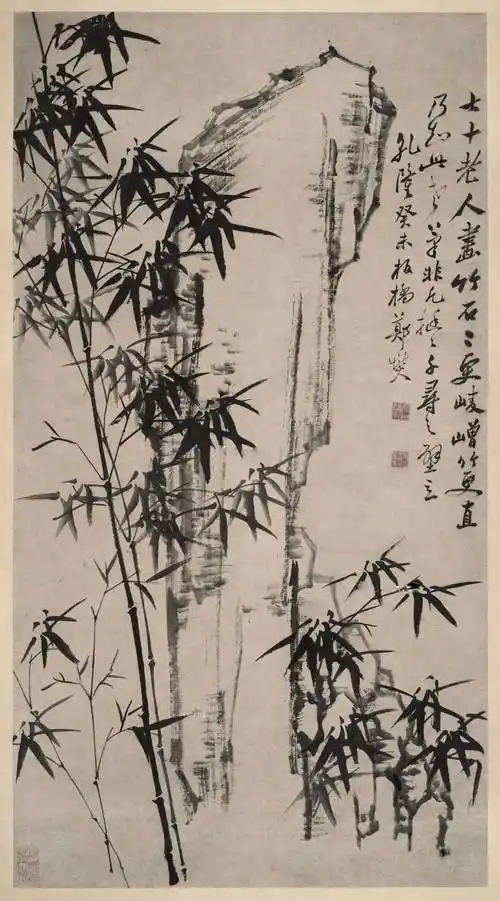 七十老人畫竹石石〻更崚嶒竹更直
乃知此老筆非凡挺〻千尋之壁立
乾隆癸未板橋鄭燮